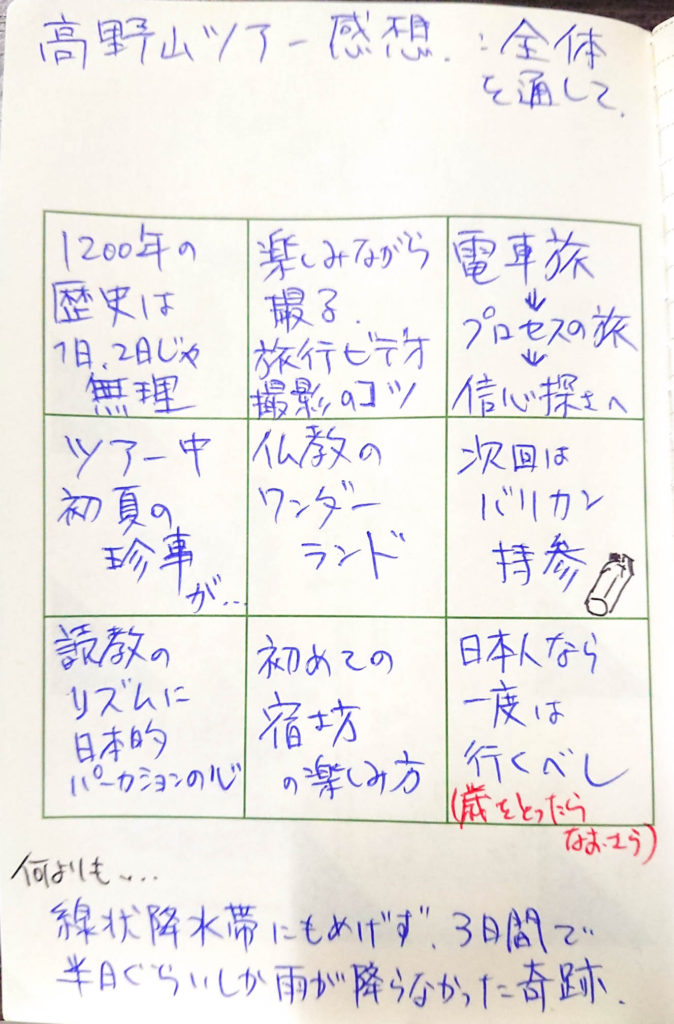 高野山ツアー感想.:全体
を通して.
1200年の
歴史は
1日、2日じゃ
無理
楽しみながら
撮る.
旅行ビデオ
撮影のコツ
電車旅
↓
プロセスの旅
↓
信心探さへ
ツアー中
初夏の
珍事
が...
仏教の
ワンダー
ランド
次回は
バリカン
持参
読教の
リズムに
日本的
パーカションの心
初めての
宿坊
の楽しみ方
日本人なら
一度は
行くべし
(歳をとったら
なおさら)
何よりも...
線状降水帯にもめげず、3日間で
半日ぐらいしか雨が降らなかった奇跡.